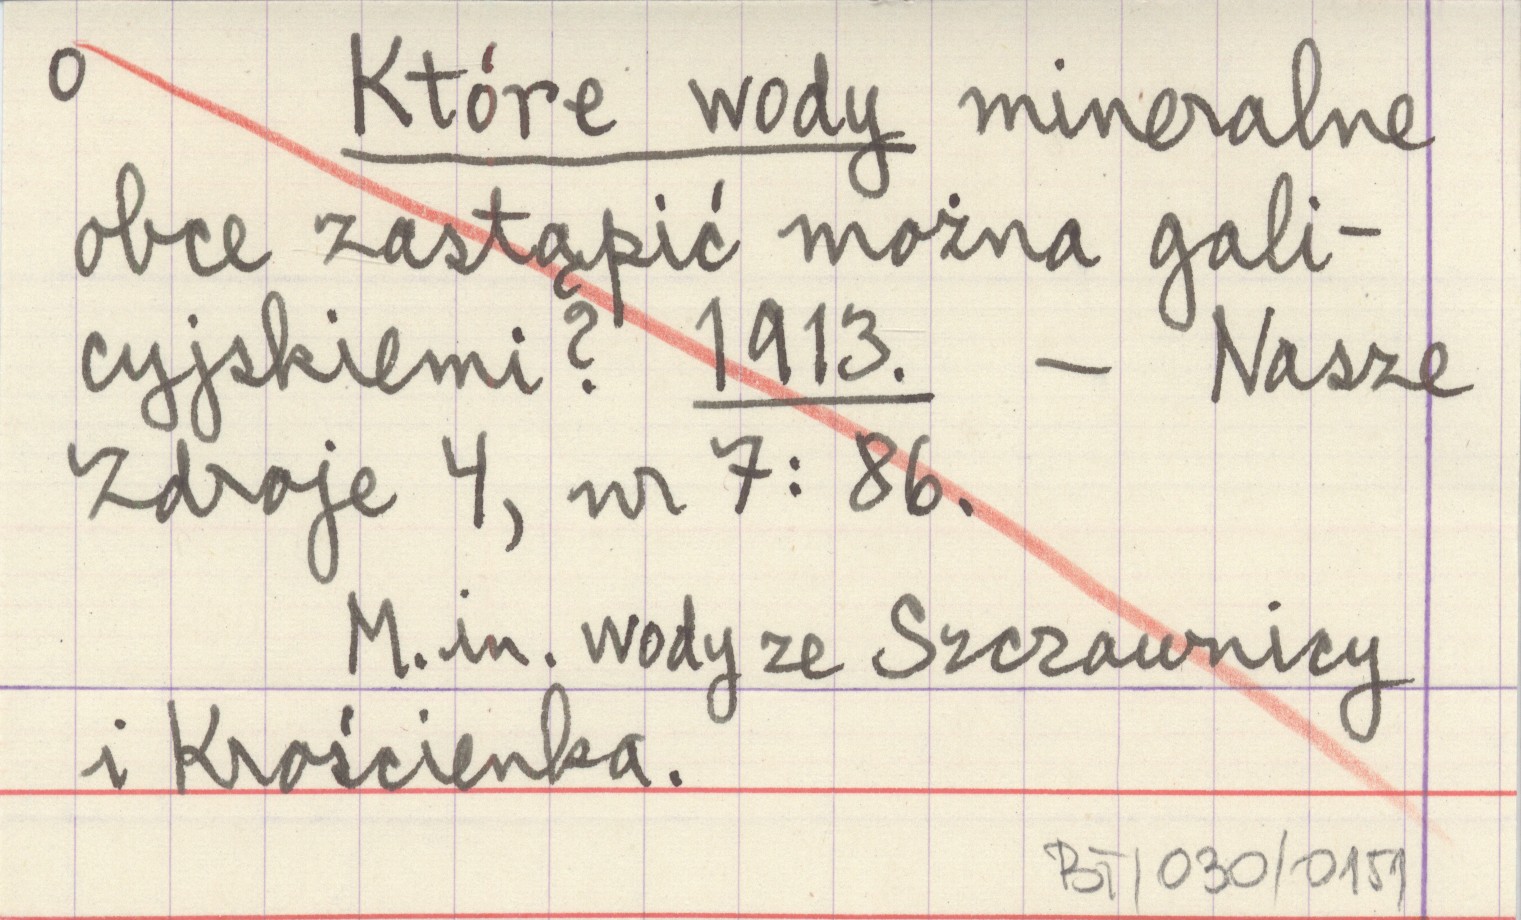 o Które wody mineralne
obce zastąpić można gali-
cyjskiemi? 1913. — Nasze
Zdroje 4, nr 7: 86.
M.in. wody ze Szczawnicy
i Krościenka.
BT/030/0151